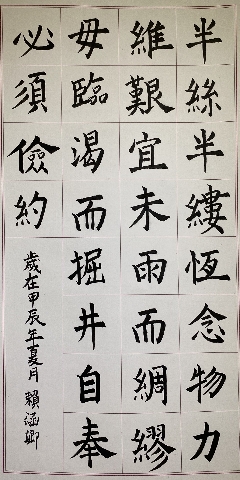 半絲半縷恆念物力
維艱宜未雨而綢繆
毋臨渴而掘井自奉
必須儉約
歲在甲辰年夏月 賴涵卿